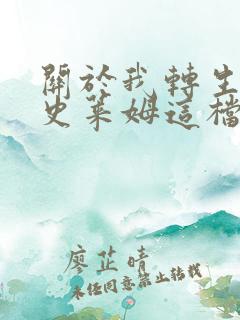 關於我轉生
史萊姆這檔
廖芷晴
未任同意禁止轉載